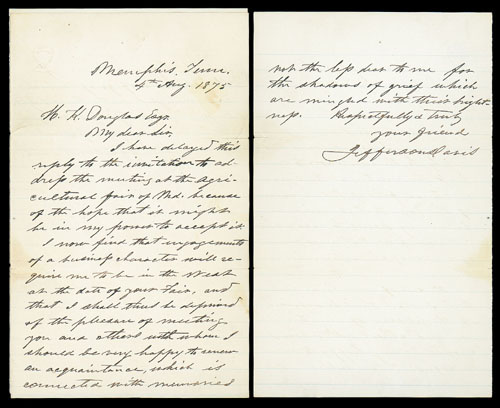 Memphis, Tenn.
4th Aug. 1875
H. K. Douglas Esqr.
My dear Sir,
I have delayed this
reply to the invitation to ad-
dress the meeting at the Agri-
cultural fair of Md. because
of the hope that it might
be in my power to accept it.
I now find that engagements
of a business character will re-
quire me to be in the West
at the date of your Fair, and
that I shall thus be deprived
of the pleasure of meeting
you and others with whom I
should be very happy to renew
an acquaintance, which is
connected with memories
not the less dear to me for
the shadows of grief which
are mingled with their bright-
ness. Respectfully & truly
your friend
Jefferson Davis